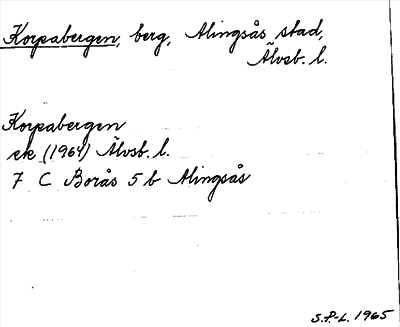 Korpabergen, berg, Alingsås stad,
Älvsb. l.
Korpabergen
ek (1964) Älvsb. l.
7 C Borås 5 b Alingsås
S.P.-L. 1965